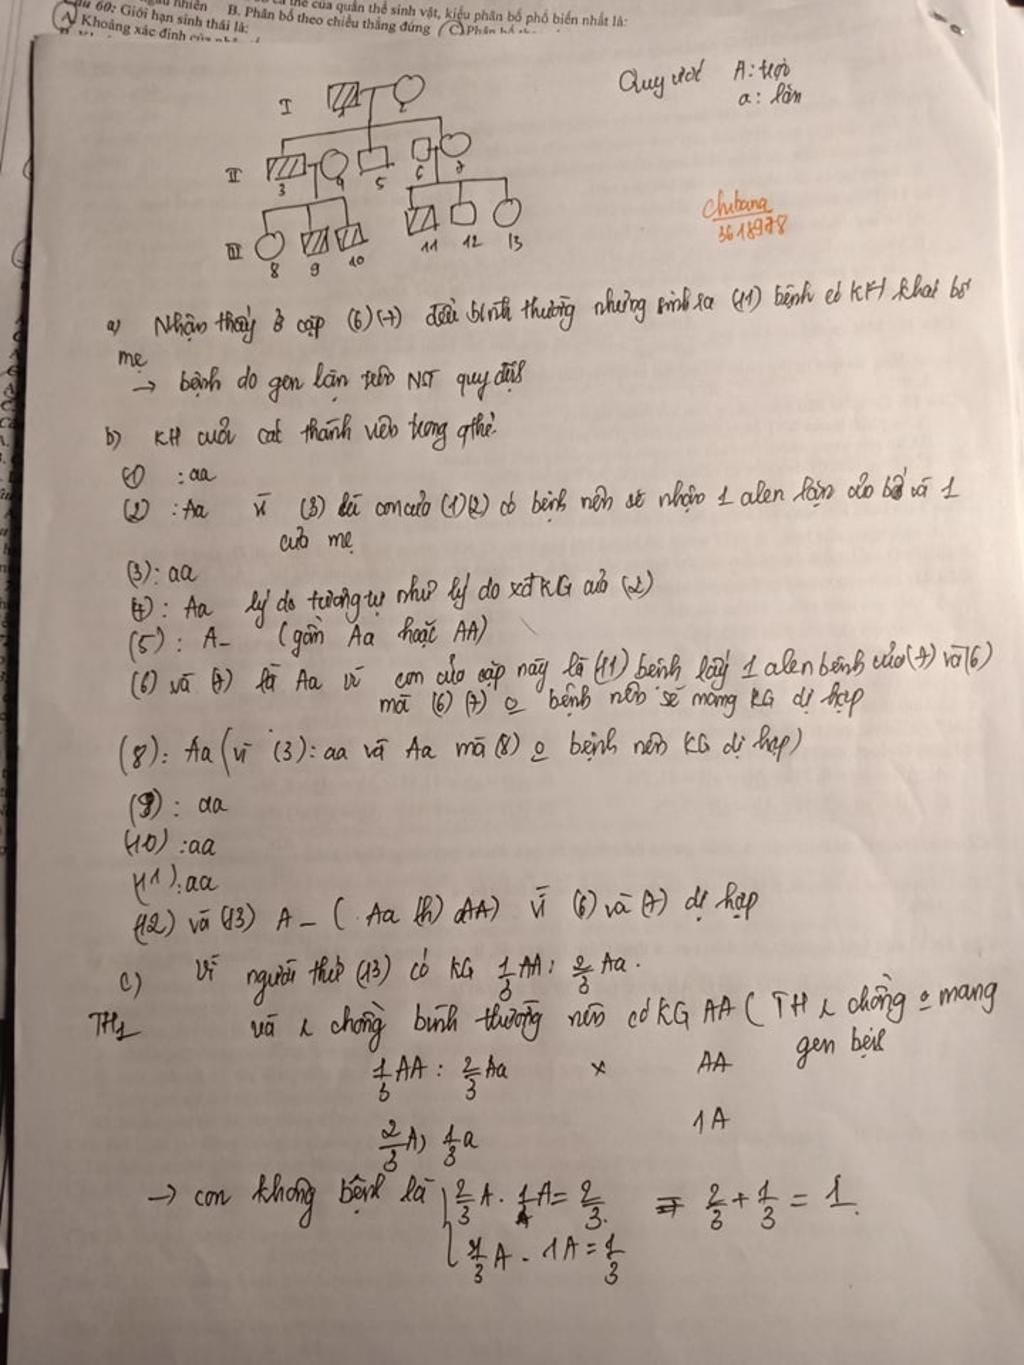 B. Phân bố theo chiều thẳng đứng
của quần thể sinh vật, kiểu phân bố phổ biến nhất là:
60: Giới hạn sinh thái là:
A Khoảng xác định
Quy ước A: trội
a: lặn
I
1 2
II
3 4 5 6 7
III
8 9 10 11 12 13
Chibana
3618978
a) Nhận thấy ở cặp (6)(7) đều bình thường nhưng sinh ra (11) bệnh có KH khác bố
mẹ
→ bệnh do gen lặn trên NST quy định
b) KH của các thành viên trong qthể.
(1) : aa
(2) : Aa vì (3) là con của (1)(2) có bệnh nên sẽ nhận 1 alen lặn của bố và 1
của mẹ
(3): aa
(4): Aa lý do tương tự như lý do xđ KG của (2)
(5): A_ (gồm Aa hoặc AA)
(6) và (7) là Aa vì con của cặp này là (11) bệnh lấy 1 alen bệnh của (7) và (6)
mà (6) (7) o bệnh nên sẽ mang KG dị hợp
(8): Aa (vì (3): aa và Aa mà (8) o bệnh nên KG dị hợp)
(9): aa
(10): aa
(11): aa
(12) và (13) A_ ( Aa (h) AA) vì (6) và (7) dị hợp
c) Vì người thứ (13) có KG 1/3 AA : 2/3 Aa.
TH1 và chồng bình thường nên có KG AA ( TH chồng o mang
gen bệnh
1/3 AA : 2/3 Aa × AA
2/3 A, 1/3 a 1A
→ con không bệnh là 2/3 A . 1A = 2/3. = 2/3 + 1/3 = 1.
1/3 A . 1A = 1/3